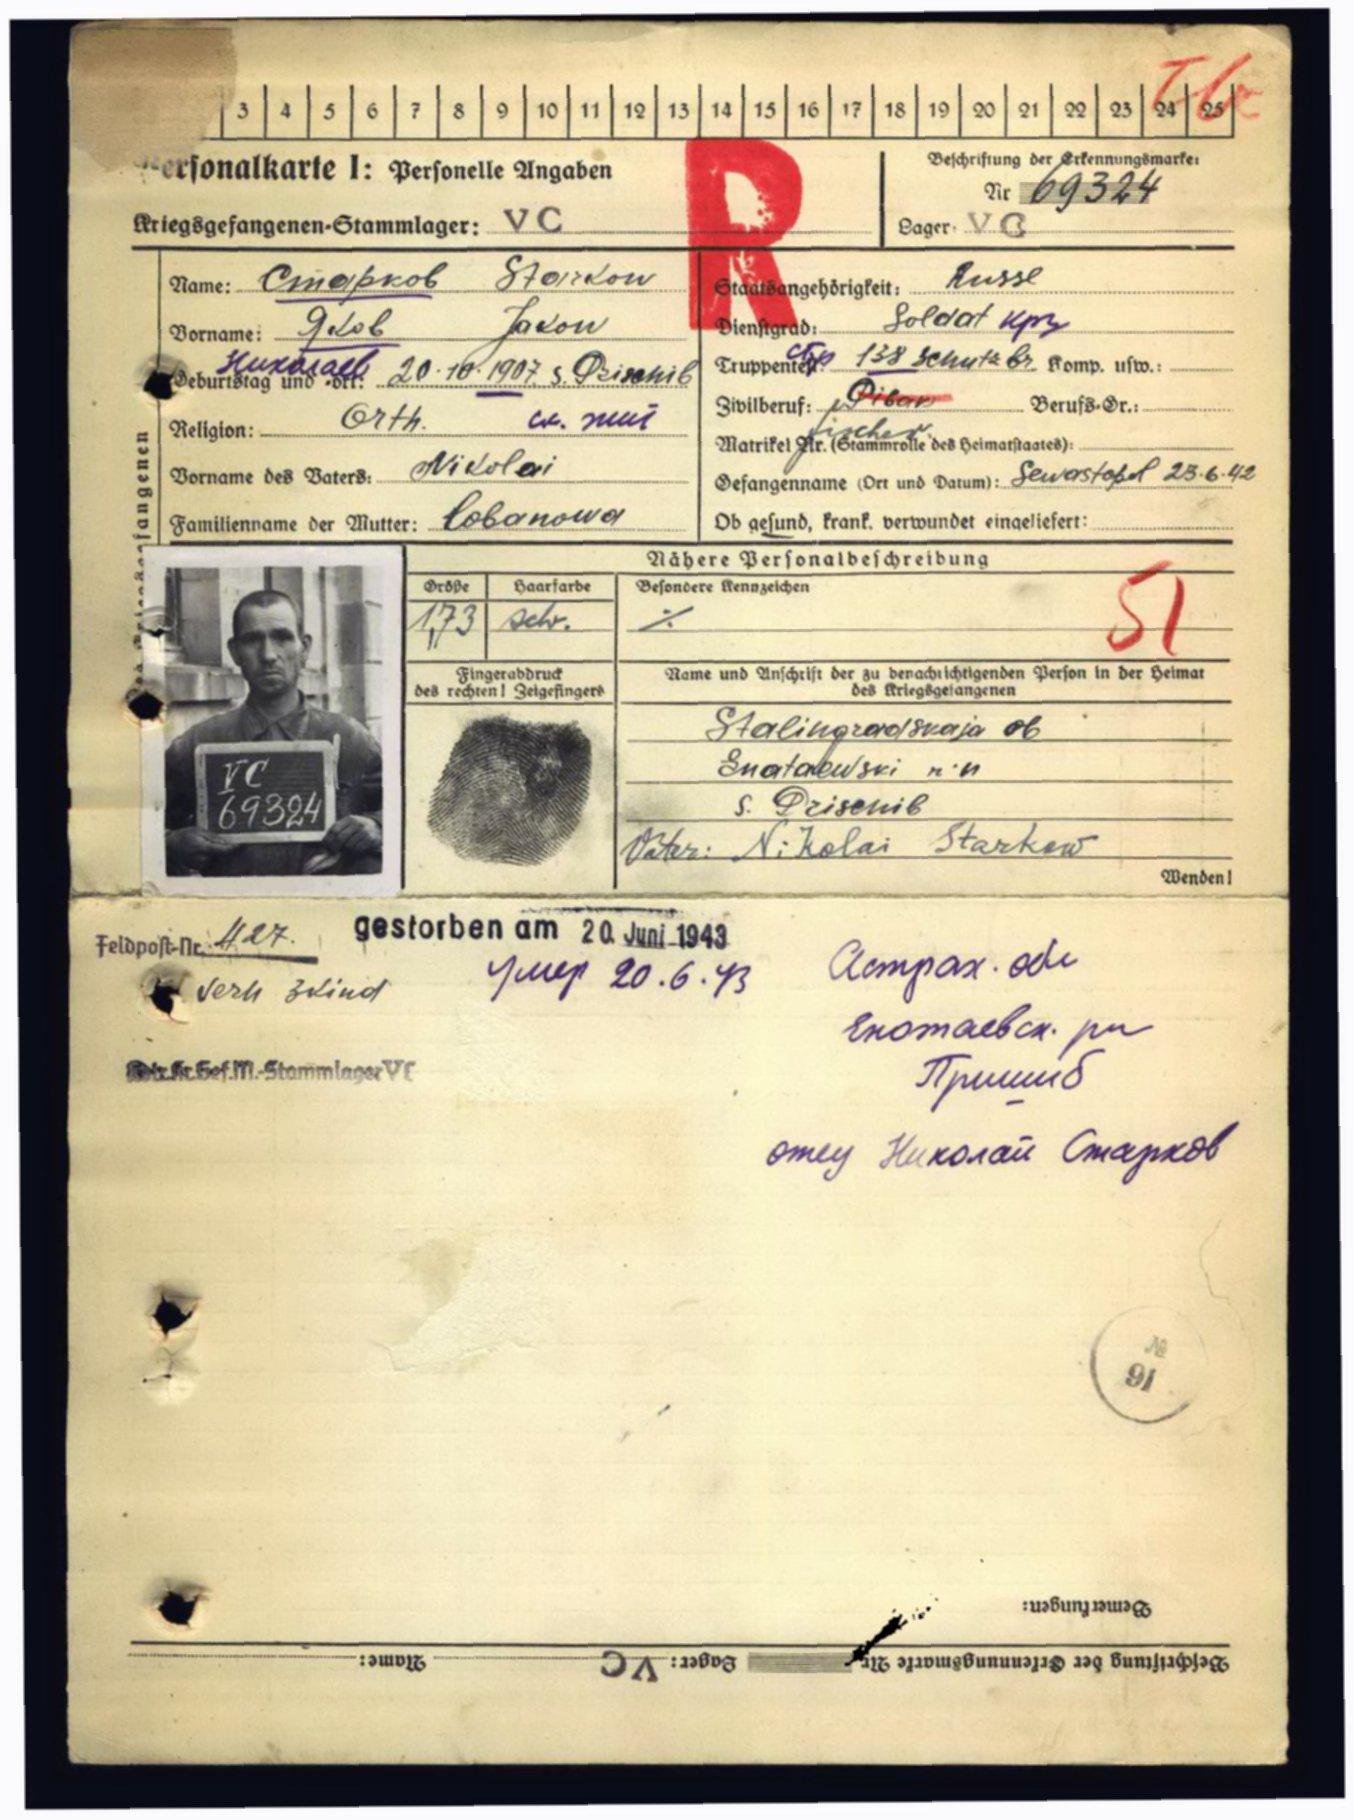 3 4 5 6 7 8 9 10 11 12 13 14 15 16 17 18 19 20 21 22 23 24 25
Tbc
Personalkarte I: Personelle Angaben
Kriegsgefangenen-Stammlager: VC
R
Beschriftung der Erkennungsmarke:
Nr 69324
Lager: VC
Name: Старков Starkow
Vorname: Яков Jakow
Николаев
Geburtstag und -ort: 20.10.1907 s. Prischib
Religion: Orth.
Vorname des Vaters: Nikolai
Familienname der Mutter: Lobanowa
Staatsangehörigkeit: Russe
Dienstgrad: Soldat кр
Truppenteil: стр 138 Schutz br Komp. usw.:
Zivilberuf: Fischer Berufs-Gr.:
Matrikel Nr. (Stammrolle des Heimatstaates):
Gefangenname (Ort und Datum): Sewastopol 23.6.42
Ob gesund, krank, verwundet eingeliefert:
des Kriegsgefangenen
Nähere Personalbeschreibung
Größe Haarfarbe Besondere Kennzeichen
1,73 schw. ./.
51
Fingerabdruck
des rechten! Zeigefingers
Name und Anschrift der zu benachrichtigenden Person in der Heimat
des Kriegsgefangenen
VC
69324
Stalingradskaja ob
Enataewski
s. Prischib
Vater: Nikolai Starkow
Wenden!
Feldpost-Nr. 427.
gestorben am 20. Juni 1943
умер 20.6.43
verh 3 Kind
Kr.Gef.M.-Stammlager VC
Астрах. обл
Енотаевск. рн
Пришиб
отец Николай Старков
№
91
Bemerkungen:
Beschriftung der Erkennungsmarke Nr. Lager: VC Name: